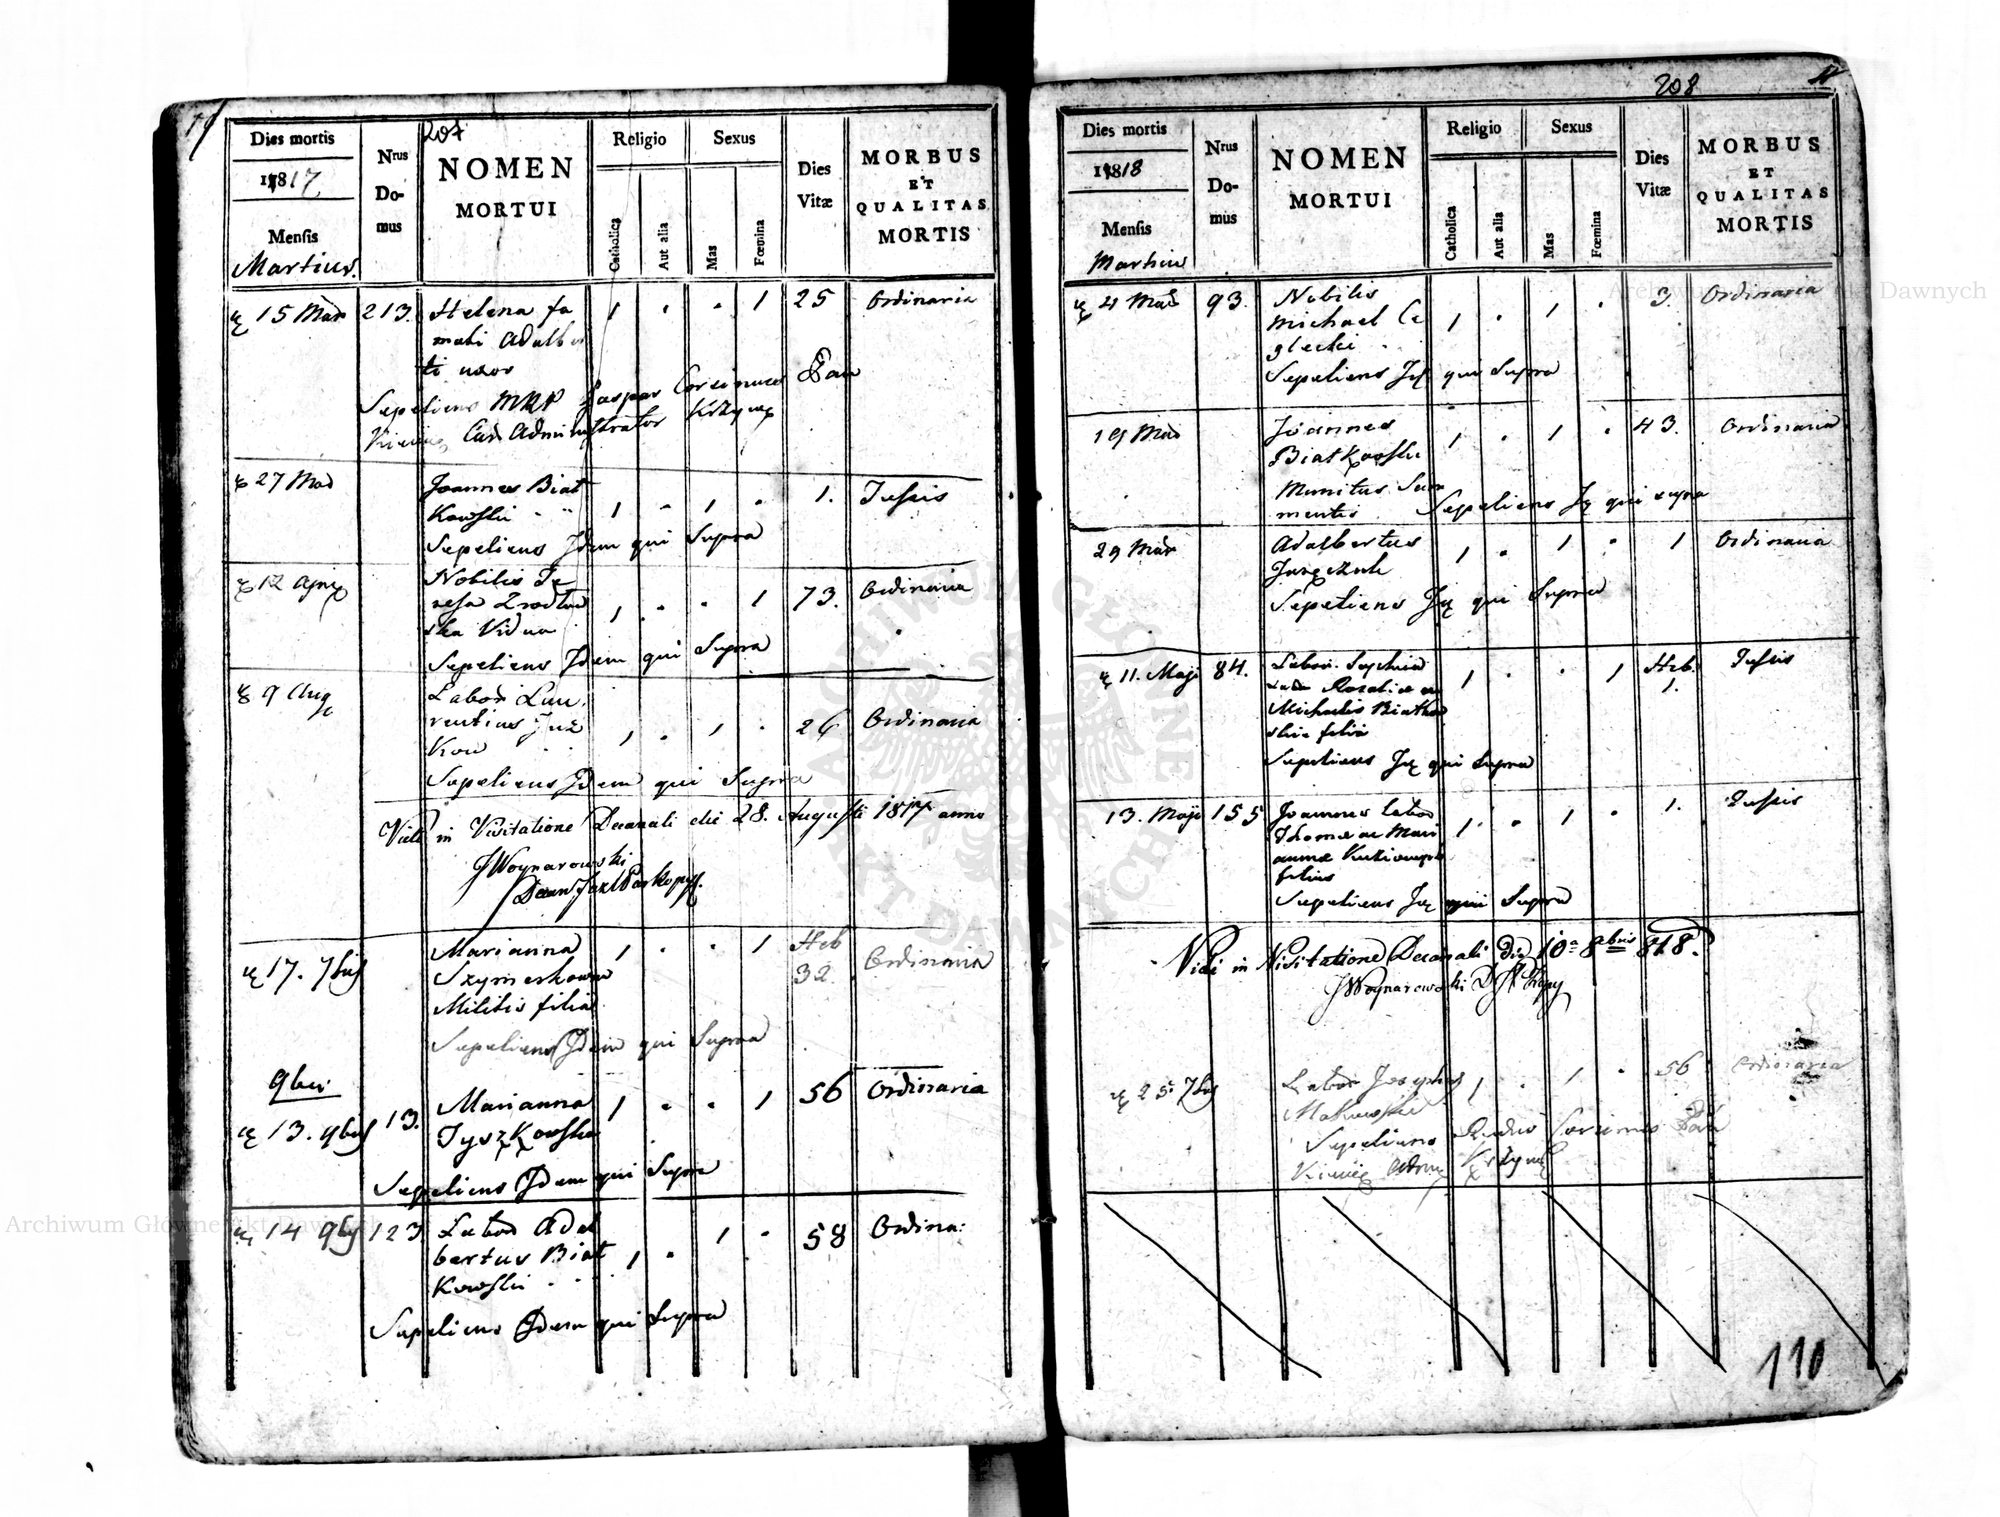 207
Dies mortis
1817
Mensis
Martius.
Nrus
Do-
mus
NOMEN
MORTUI
Religio
Catholica
Aut alia
Sexus
Mas
Fœmina
Dies
Vitæ
MORBUS
ET
QUALITAS
MORTIS
15 Mar 213. Helena fa 1 . . 1 25 Ordinaria
muli Adalber
ti uxor
Sepeliens MRP Gaspar
Cur Administrator
27 Mar Joannes Biał
Kowski 1 . 1 . 1. Tussis
Sepeliens Idem qui Supra
12 Nobilis Te
resa 1 . . 1 73. Ordinaria
ska Vidua
Sepeliens Idem qui Supra
9 Aug Labor Lau
rentius Juz
Kow 1 . 1 . 26 Ordinaria
Sepeliens Idem qui Supra
Vidi in Visitatione Decanali die 28. Augusti 1817 anno
JWoynarowski
17. 7bris Marianna 1 . . 1 Heb
32 Ordinaria
Militis filia
Sepeliens Idem qui Supra
9bri
13. 9bris 13. Marianna 1 . . 1 56 Ordinaria
Tyszkowska
Sepeliens Idem qui Supra
14 9bris 123 Labor Adal 1 . 1 . 58 Ordina:
bertus Biał
Kowski
Sepeliens Idem qui Supra
208
Dies mortis
1818
Mensis
Martius
Nrus
Do-
mus
NOMEN
MORTUI
Religio
Catholica
Aut alia
Sexus
Mas
Fœmina
Dies
Vitæ
MORBUS
ET
QUALITAS
MORTIS
4 Mar 93. Nobilis
Michael Ce
glecki 1 . 1 . 3. Ordinaria
Sepeliens qui Supra
19 Mar Joannes 1 . 1 . 43. Ordinaria
Białkowski
Munitus Sacra
mentis Sepeliens qui supra
29 Mar Adalbertus 1 . 1 . 1 Ordinaria
Sepeliens qui Supra
11. Maji 84. Labor. Sophia 1 . . 1 Heb. 1. Tussis
Rosaliæ
Michaelis
filia
Sepeliens qui Supra
13. Maji 155 Joannes Labor 1 . . 1 . 1. Tussis
Thomæ ac Mari
annæ
filius
Sepeliens qui Supra
Vidi in Visitatione Decanali die 10a 8bris 818.
JWoynarowski
25 7bris Labor Josephus 1 . 1 . 56 Ordinaria
Makowski
Sepeliens
110
Archiwum Główne Akt Dawnych
Archiwum Główne Akt Dawnych
ARCHIWUM GŁÓWNE AKT DAWNYCH